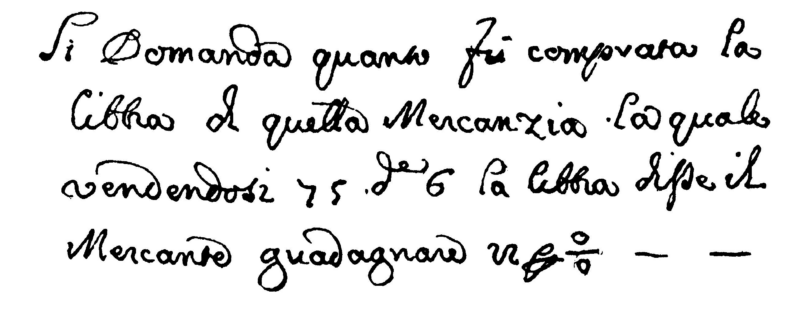 Si Domanda quanto fú comprata la
libbra di quella Mercanzia la quale
vendendosi 75 de 6 la libbra disse il
Mercante guadagnare 22 p % — —